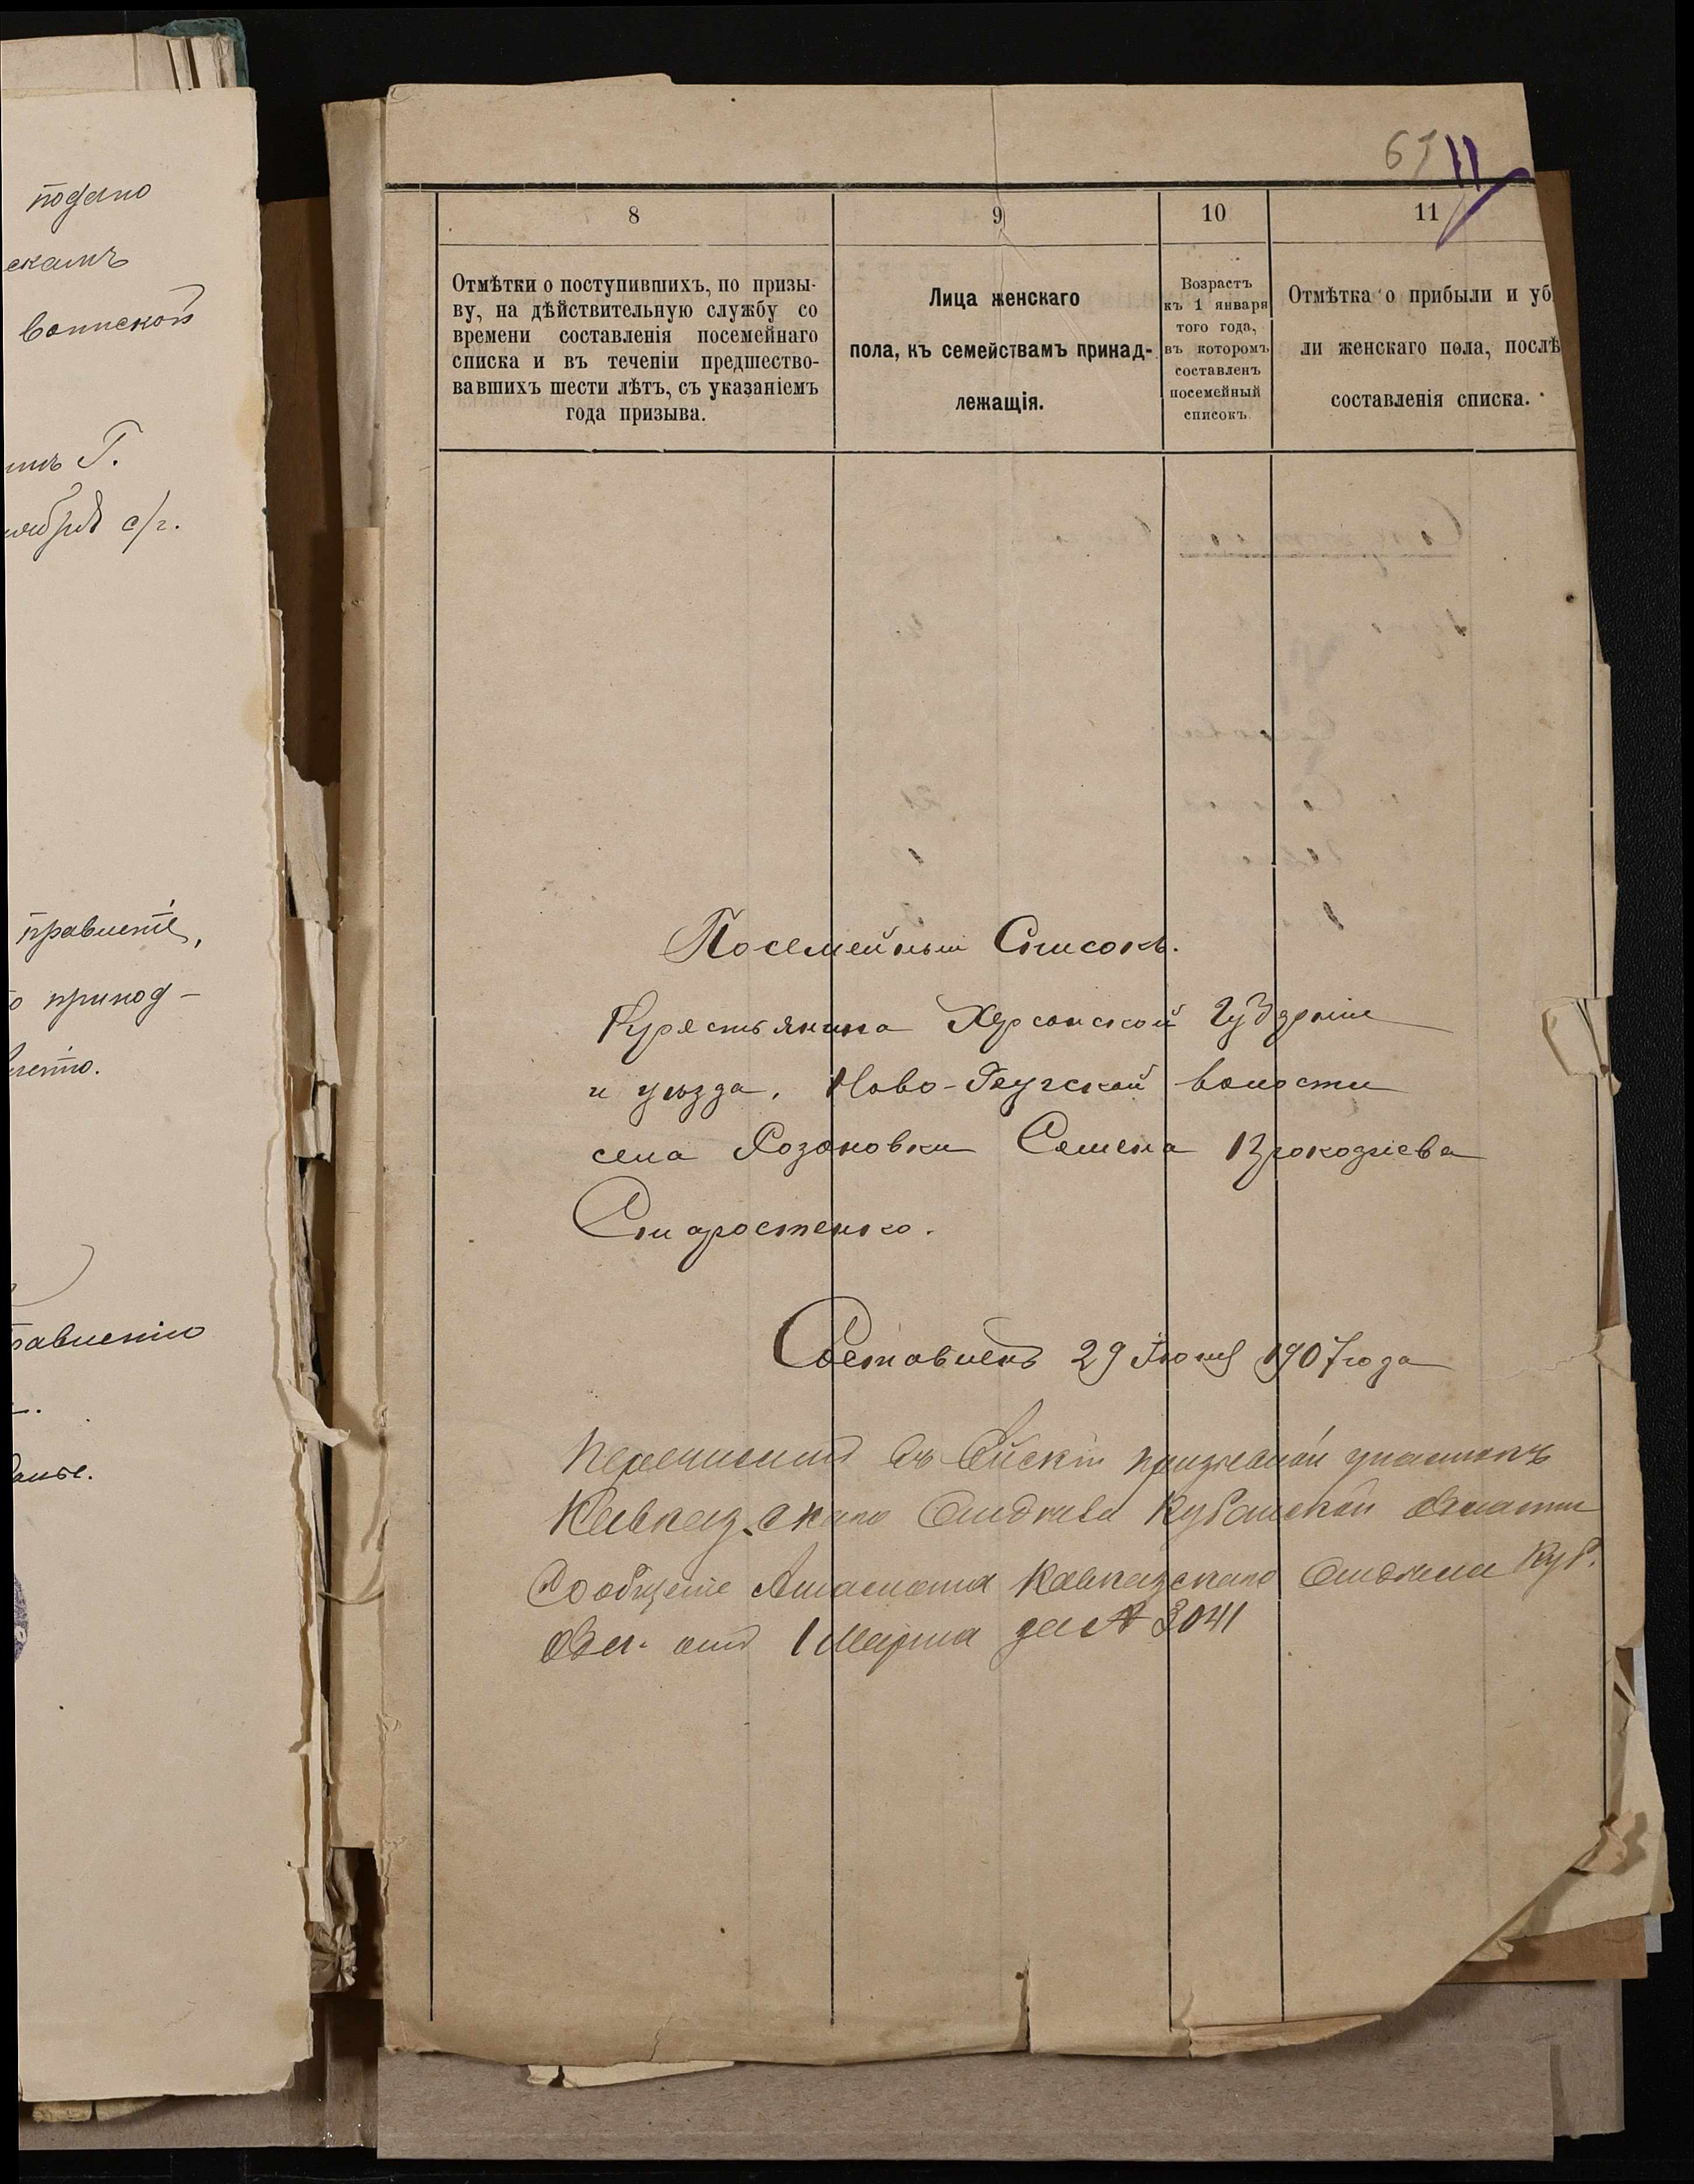 подано
воинской
с/г.
правленіе,
67 11
8 9 10 11
Отмѣтки о поступившихъ, по призы-
ву, на дѣйствительную службу со
времени составленія посемейнаго
списка и въ теченіи предшество-
вавшихъ шести лѣтъ, съ указаніемъ
года призыва.
Лица женскаго
пола, къ семействамъ принад-
лежащія.
Возрастъ
къ 1 января
того года,
въ которомъ
составленъ
посемейный
списокъ
Отмѣтка о прибыли и уб
ли женскаго пола, послѣ
составленія списка.
Посемейный Списокъ.
Крестьянина Херсонской Губерніи
и уѣзда, Ново-Бугской волости
села Розановки Семена Прокофіева
Старостенко.
Составленъ 29 1907 года
Перечисленъ въ Ейскій призывной участокъ
Кавказскаго Отдѣла Кубанской области
Сообщеніе Атамана Кавказскаго Отдѣла Куб.
Обл. отъ 1 Марта за № 3041